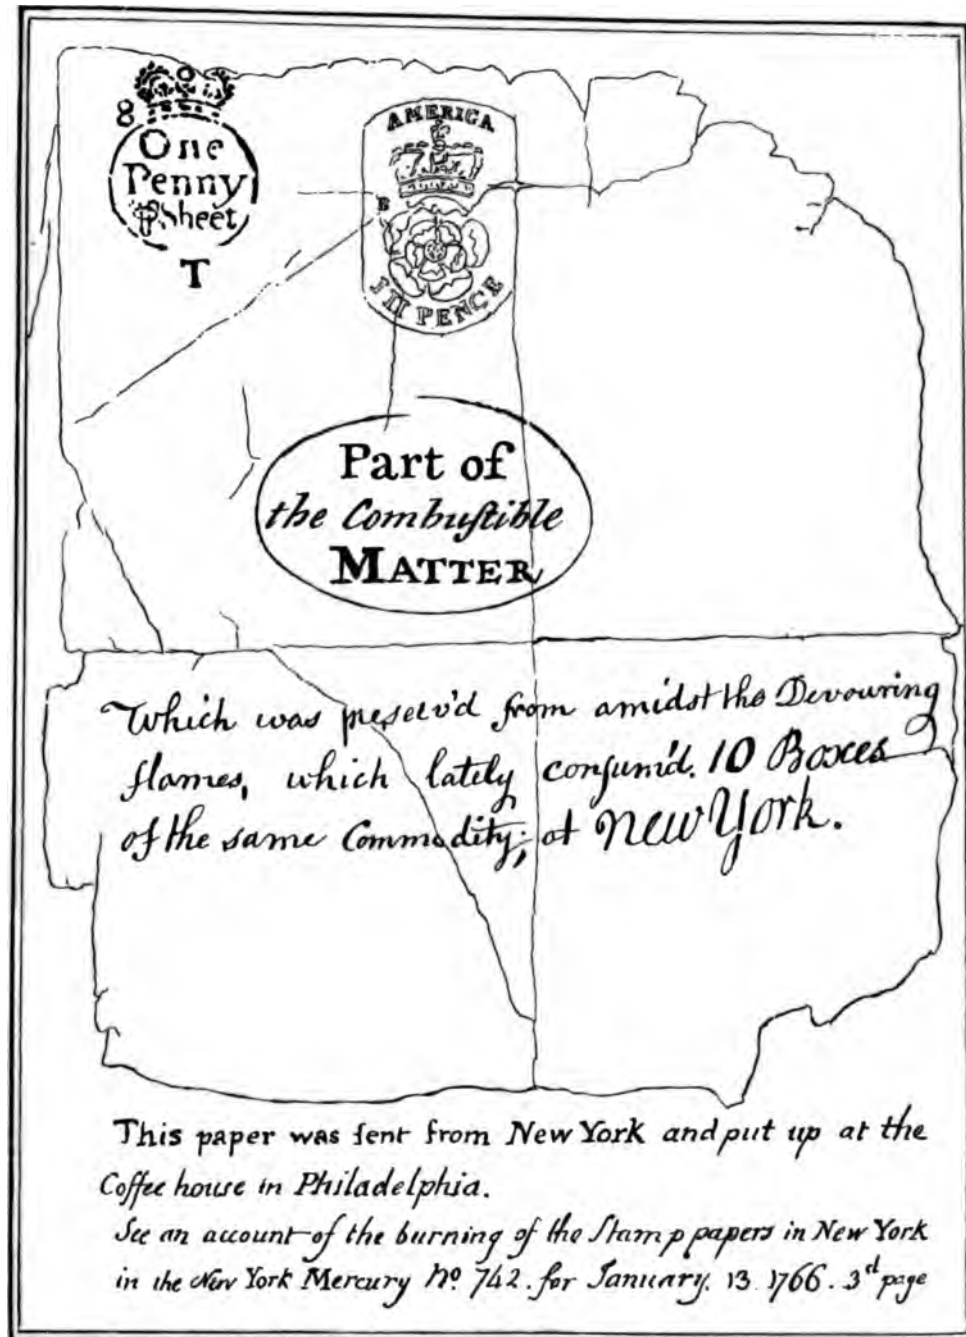 8
One
Penny
℔ Sheet
T
AMERICA
B
III PENCE
Part of
the Combuſtible
MATTER
Which was preserv'd from amidst the Devouring
flames, which lately conſum'd. 10 Boxes
of the same Commodity; at New York.
This paper was ſent from New York and put up at the
Coffee house in Philadelphia.
See an account of the burning of the Stamp papers in New York
in the New York Mercury No. 742. for January. 13. 1766. 3d page